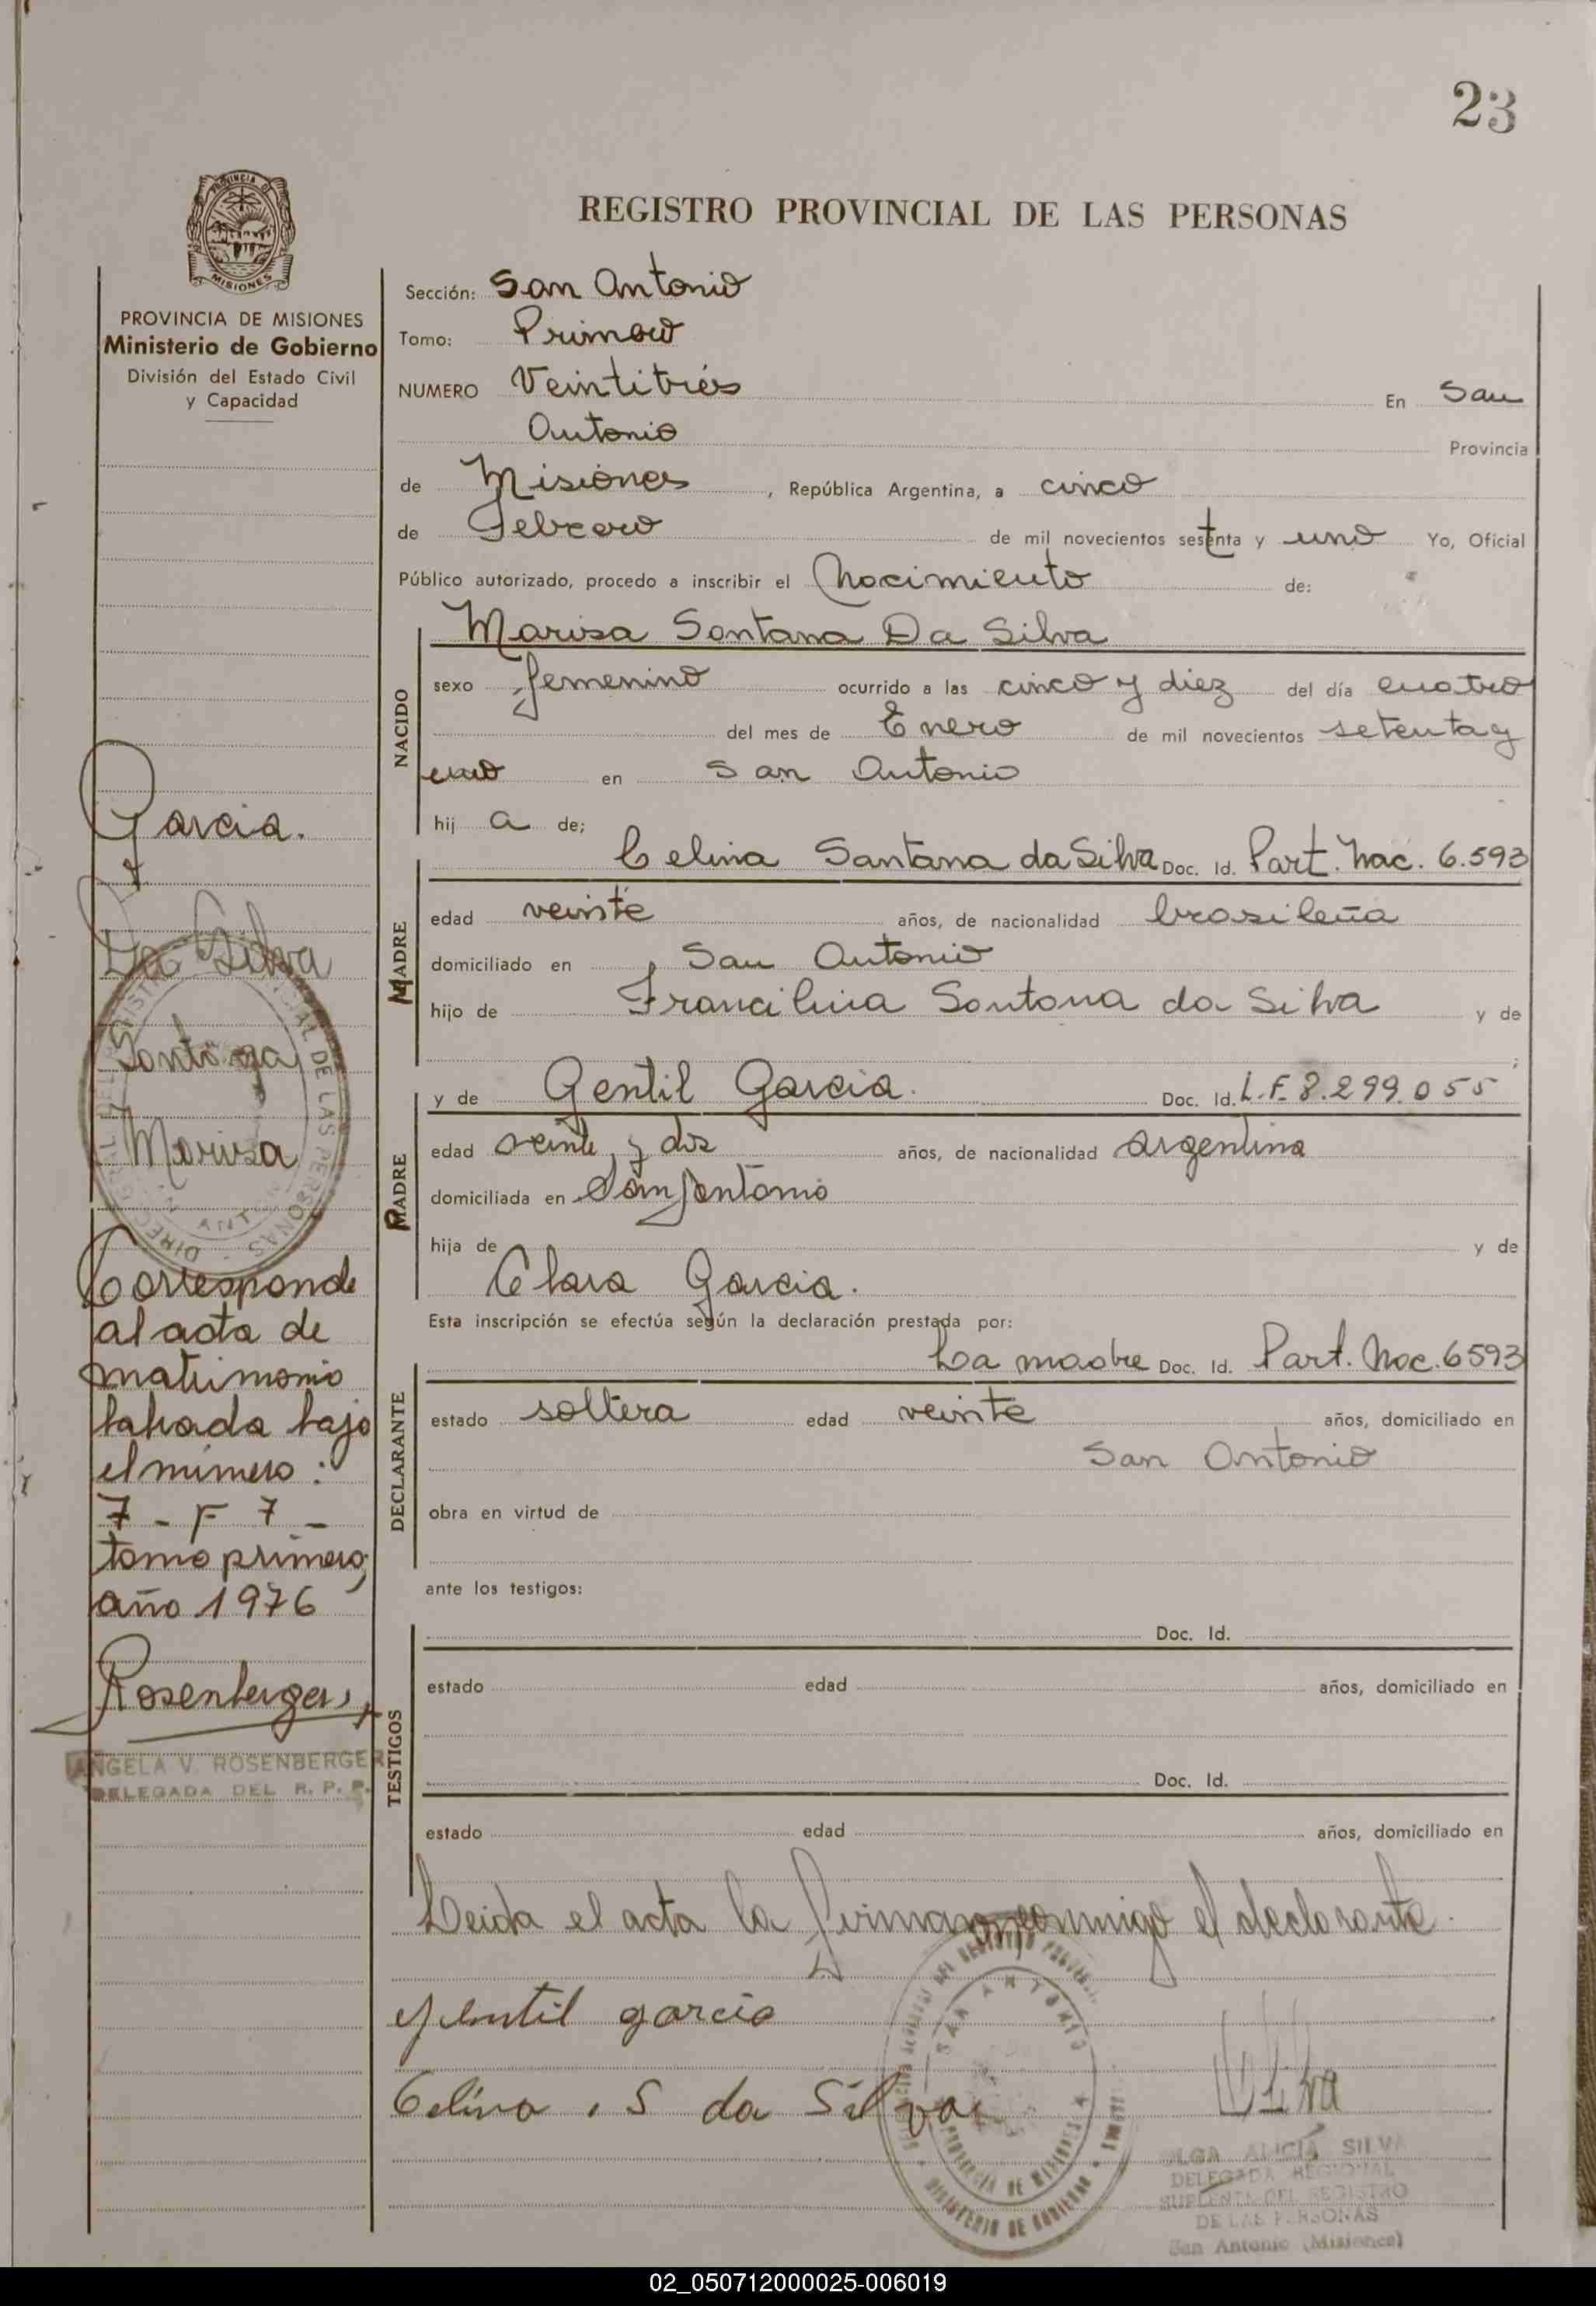 23
PROVINCIA DE
MISIONES
REGISTRO PROVINCIAL DE LAS PERSONAS
PROVINCIA DE MISIONES
Ministerio de Gobierno
División del Estado Civil
y Capacidad
Sección: San Antonio
Tomo: Primero
NUMERO Veintitrés En San
Antonio Provincia
de Misiones, República Argentina, a cinco
de Febrero de mil novecientos setenta y uno Yo, Oficial
Público autorizado, procedo a inscribir el Nacimiento de:
NACIDO
Marisa Santana Da Silva
sexo femenino ocurrido a las cinco y diez del día cuatro
del mes de Enero de mil novecientos setenta y
uno en San Antonio
hij a de;
MADRE
Celina Santana da Silva Doc. Id. Part. Nac. 6.593
edad veinte años, de nacionalidad brasileña
domiciliado en San Antonio
hijo de Francilina Santana da Silva y de
PADRE
y de Gentil Garcia. Doc. Id. L.E. 8.299.055
edad veinte y dos años, de nacionalidad argentina
domiciliada en San Antonio
hija de y de
Clara Garcia.
Esta inscripción se efectúa según la declaración prestada por:
DECLARANTE
La madre Doc. Id. Part. Nac. 6593
estado soltera edad veinte años, domiciliado en
San Antonio
obra en virtud de
ante los testigos:
TESTIGOS
Doc. Id.
estado edad años, domiciliado en
Doc. Id.
estado edad años, domiciliado en
Leida el acta la firman conmigo el declarante.
Gentil garcia
Celina . S da Silva
OLGA ALICIA SILVA
DELEGADA REGIONAL
SUPLENTE DEL REGISTRO
DE LAS PERSONAS
San Antonio (Misiones)
SAN ANTONIO
PROVINCIA DE MISIONES
MINISTERIO DE GOBIERNO
Garcia.
Da Silva
Santana
Marisa
Corresponde
al acta de
matrimonio
labrada bajo
el número:
7 - F 7 -
tomo primero,
año 1976
Rosenberger
ANGELA V. ROSENBERGER
DELEGADA DEL R. P. P.
02_050712000025-006019